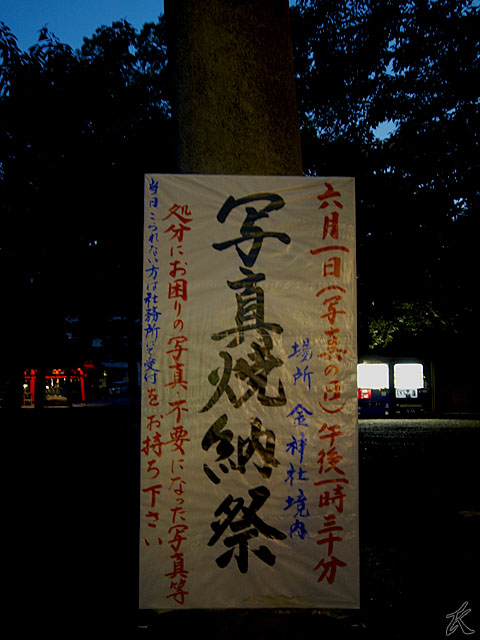 六月一日(写真の日)午後一時三十分
場所 金神社境内
写真焼納祭
処分にお困りの写真、不要になった写真等
をお持ち下さい
当日こられない方は社務所にて受付